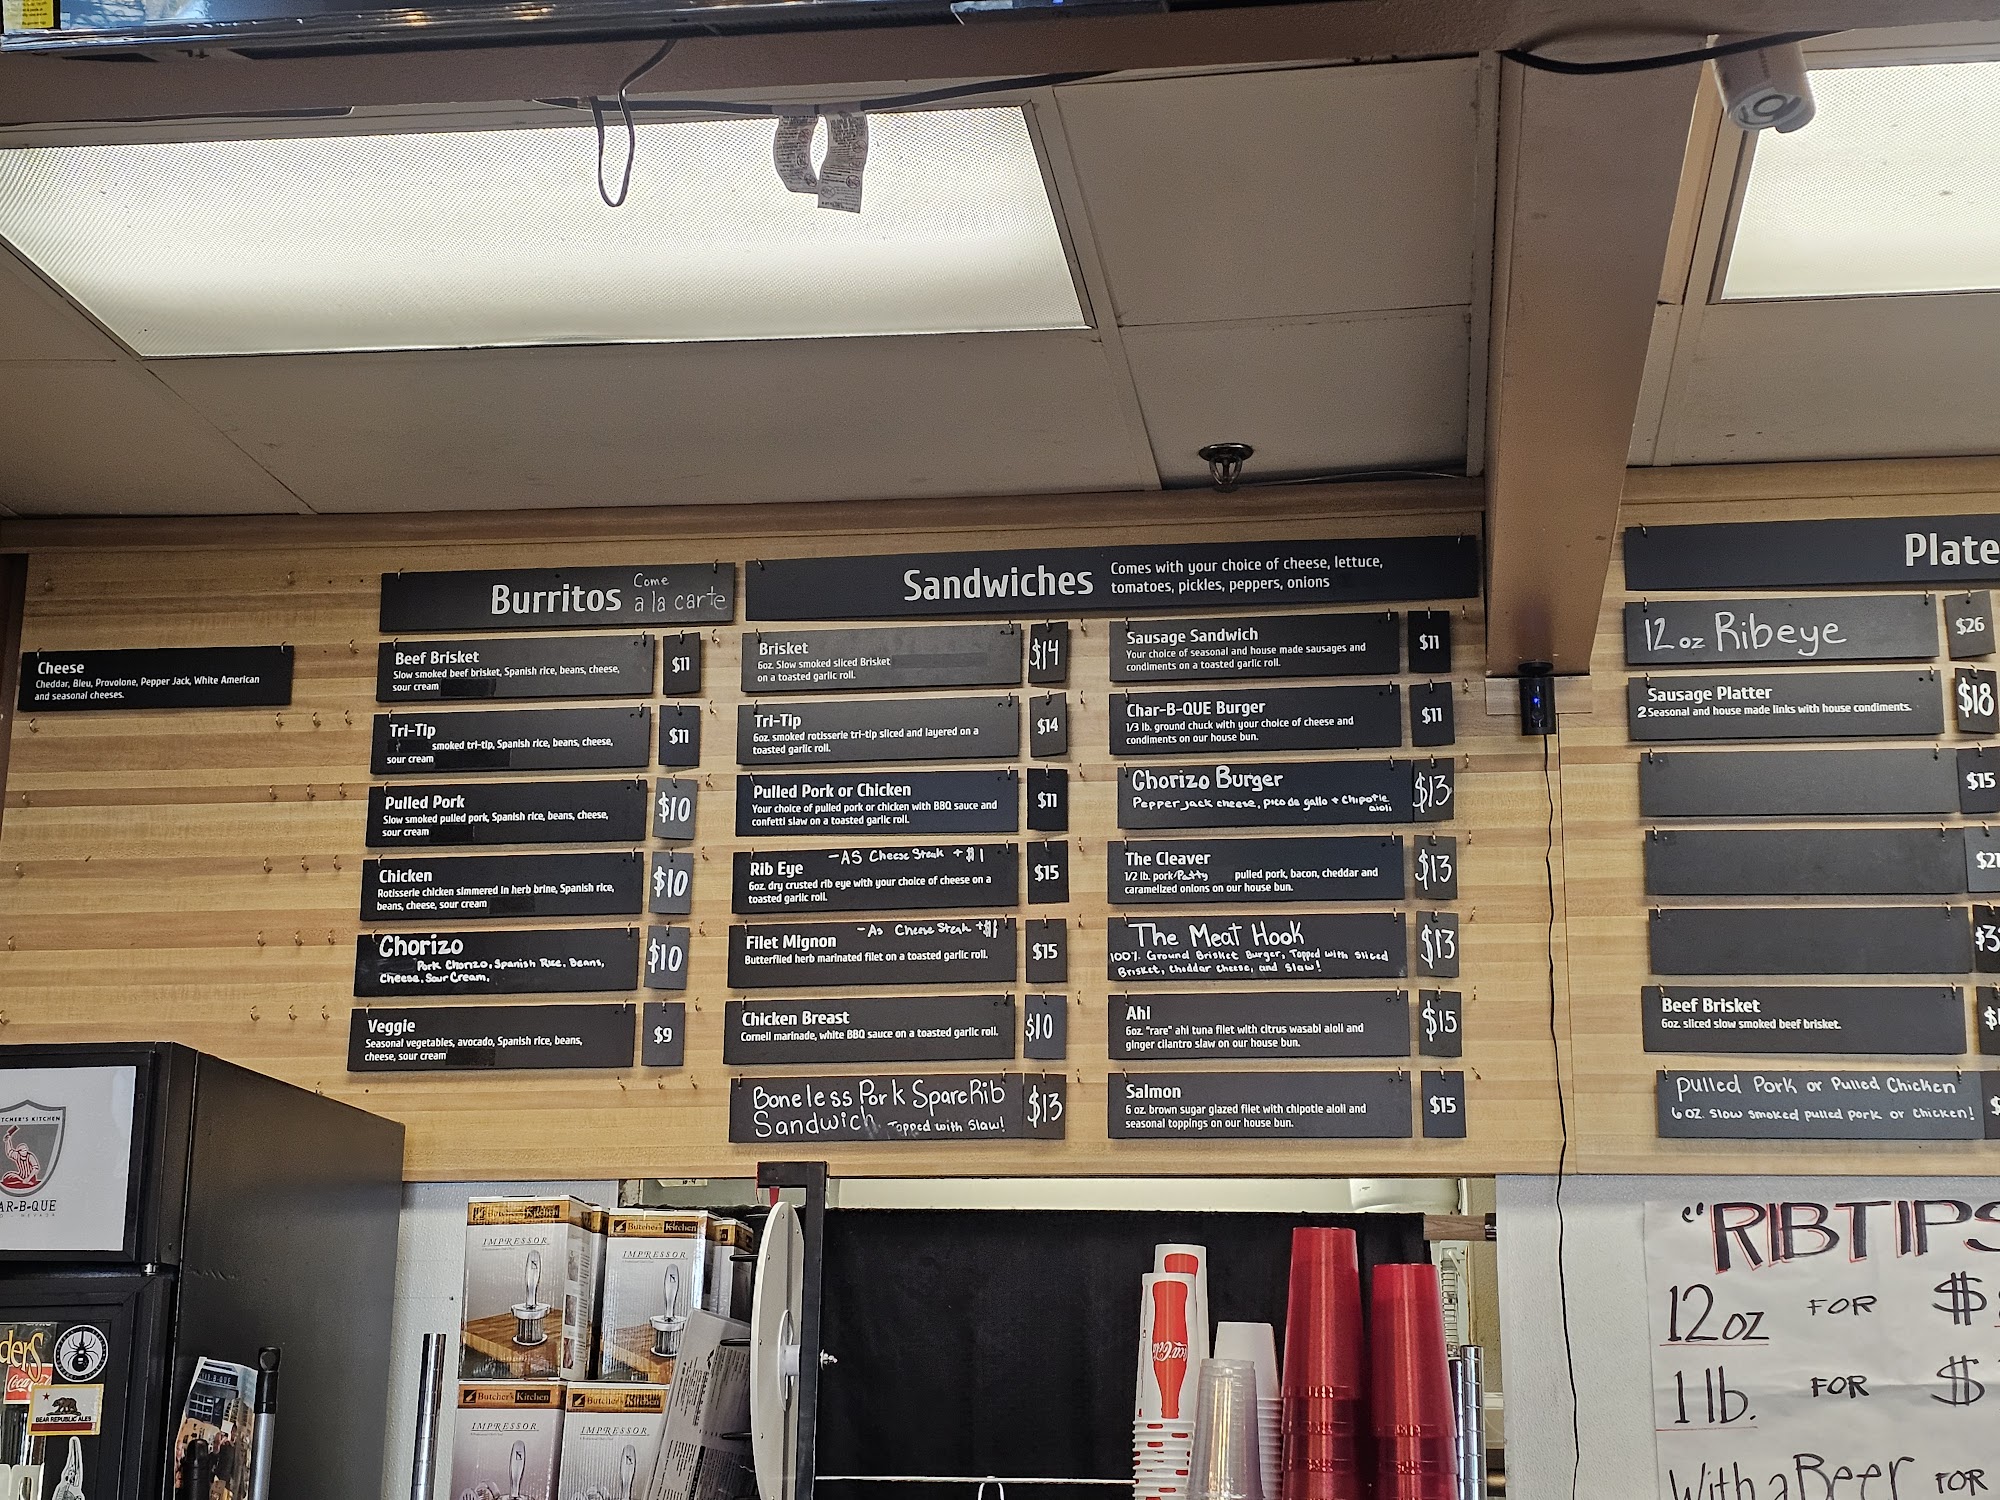 Cheese
Cheddar, Bleu, Provolone, Pepper Jack, White American
and seasonal cheeses.
Burritos Come
a la carte
Beef Brisket $11
Slow smoked beef brisket, Spanish rice, beans, cheese,
sour cream
Tri-Tip $11
smoked tri-tip, Spanish rice, beans, cheese,
sour cream
Pulled Pork $10
Slow smoked pulled pork, Spanish rice, beans, cheese,
sour cream
Chicken $10
Rotisserie chicken simmered in herb brine, Spanish rice,
beans, cheese, sour cream
Chorizo $10
Pork Chorizo, Spanish Rice, Beans,
Cheese, Sour Cream,
Veggie $9
Seasonal vegetables, avocado, Spanish rice, beans,
cheese, sour cream
Sandwiches Comes with your choice of cheese, lettuce,
tomatoes, pickles, peppers, onions
Brisket $14
6oz. Slow smoked sliced Brisket
on a toasted garlic roll.
Tri-Tip $14
6oz. smoked rotisserie tri-tip sliced and layered on a
toasted garlic roll.
Pulled Pork or Chicken $11
Your choice of pulled pork or chicken with BBQ sauce and
confetti slaw on a toasted garlic roll.
Rib Eye -AS Cheese Steak +$1 $15
6oz. dry crusted rib eye with your choice of cheese on a
toasted garlic roll.
Filet Mignon -As Cheese Steak +$1 $15
Butterflied herb marinated filet on a toasted garlic roll.
Chicken Breast $10
Cornell marinade, white BBQ sauce on a toasted garlic roll.
Boneless Pork SpareRib $13
Sandwich. Topped with Slaw!
Sausage Sandwich $11
Your choice of seasonal and house made sausages and
condiments on a toasted garlic roll.
Char-B-QUE Burger $11
1/3 lb. ground chuck with your choice of cheese and
condiments on our house bun.
Chorizo Burger $13
Pepper jack cheese, pico de gallo + Chipotle
aioli
The Cleaver $13
1/2 lb. pork/Patty pulled pork, bacon, cheddar and
caramelized onions on our house bun.
The Meat Hook $13
100% Ground Brisket Burger, Topped with sliced
Brisket, cheddar cheese, and slaw!
Ahi $15
6oz. "rare" ahi tuna filet with citrus wasabi aioli and
ginger cilantro slaw on our house bun.
Salmon $15
6 oz. brown sugar glazed filet with chipotle aioli and
seasonal toppings on our house bun.
Plate
12oz Ribeye $26
Sausage Platter $18
2 Seasonal and house made links with house condiments.
$15
Beef Brisket
6oz. sliced slow smoked beef brisket.
pulled Pork or Pulled Chicken
6 oz. slow smoked pulled pork or chicken!
"RIBTIPS
12oz FOR $
1 lb. FOR $
With a Beer FOR
TCHER'S KITCHEN
AR-B-QUE
Butcher's Kitchen
IMPRESSOR
Butcher's Kitchen
IMPRESSOR
Butcher's Kitchen
IMPRESSOR
Butcher's Kitchen
IMPRESSOR
Coca-Cola
ders
Coca-Cola
BEAR REPUBLIC ALES